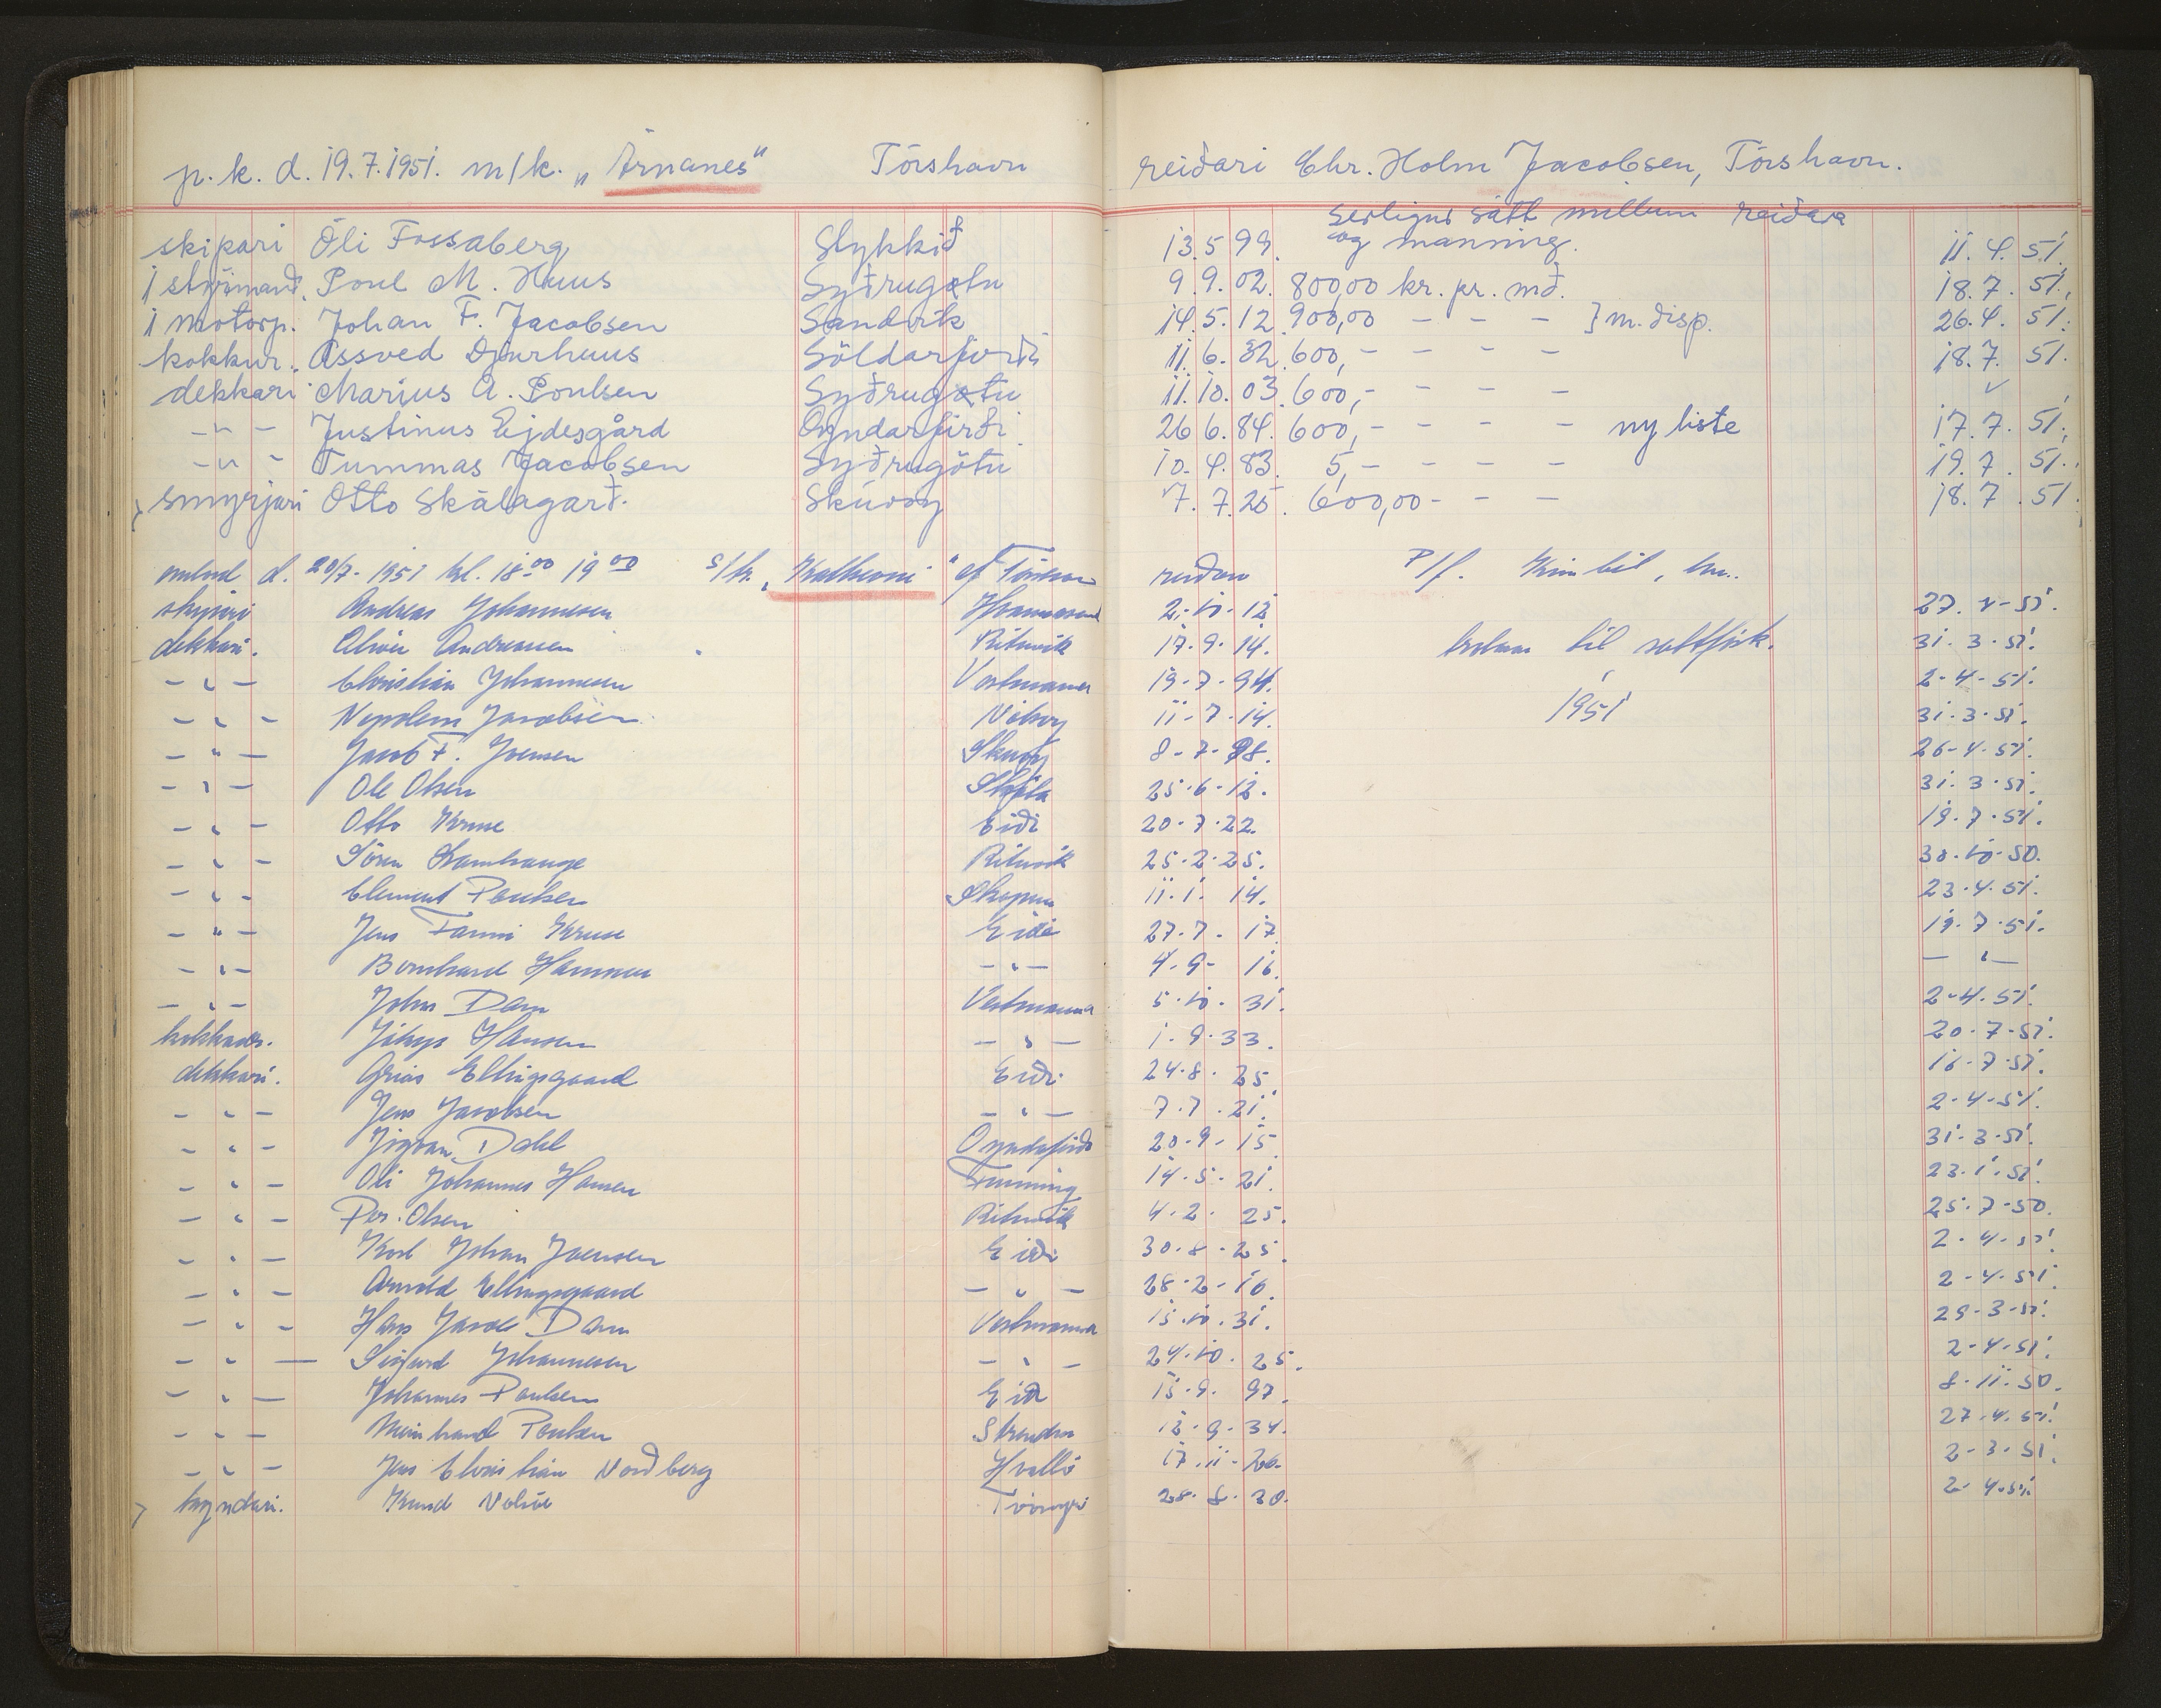 p. k. d. 19.7.1951. m/k. „Árnanes" Tórshavn reiðari Chr. Holm Jacobsen, Tórshavn.
serligur sátt millum reiðara
skipari Óli Fossaberg Stykkið 13.5.99. og manning. 11.4.51.
1 stýrimanð. Poul M. Huus Syðrugøtu 9.9.02. 800,00 kr. pr. mð. 18.7.51.
1 motorp. Johan F. Jacobsen Sandvík 14.5.12. 900,00 - - - } m. disp. 26.4.51.
kokkur. Assved Djurhuus Söldarfirði 11.6.32. 600,- - - - 18.7.51.
dekkari Marius A. Poulsen Syðrugøtu 11.10.03. 600,- - - -
-"- Justinus Ejdesgård Oyndarfirði 26.6.84. 600,- - - - ny liste 17.7.51.
-"- Tummas Jacobsen Syðrugötu 10.4.83. 5,- - - - 19.7.51.
smyrjari Otto Skálagarð. Skúvoy 7.7.25. 600,00 - - - 18.7.51.
d. 20/7-1951 kl. 18⁰⁰ 19⁰⁰ s/k. „ " P/f.
Andreas Johannesen 2-10-12
dekkari. Andreasen Rituvík 17.9.14. til saltfisk. 31.3.51.
-"- Christian Johannesen Vestmanna 19-7-94. 2-4-51.
-"- Napoleon Jacobsen Nólsoy 11-7-14. 1951 31.3.51.
-"- Jacob F. Joensen Skuvoy 8-7-98. 26-4-51.
-"- Ole Olsen Skála 25-6-12. 31.3.51.
-"- Otto Kruse Eiði 20-7-22. 19.7.51.
-"- Sören Lamhauge Rituvík 25.2.25. 30.10.50.
-"- Clement Poulsen Skopun 11.1.14. 23.4.51.
-"- Jens Kruse Eiði 27.7.17. 19.7.51.
-"- Hammer -"- 4-9-16. -"-
-"- Johs Dam Vestmanna 5.10.31. 2-4-51.
Hansen -"- 1.9.33. 20.7.51.
dekkari. Ellingsgaard Eiði 24.8.25. 16.7.51.
-"- Jens Jacobsen -"- 7.7.21. 2-4-51.
-"- Dahl 20-9-15. 31-3-51.
-"- Oli Johannes Hansen Funning 14-5-21. 23.1.51.
-"- Olsen Rituvík 4.2.25. 25.7.50.
-"- Johan Joensen Eiði 30.8.25. 2-4-51.
-"- Arnold Ellingsgaard -"- 28-2-16. 2-4-51.
-"- Hans Jacob Dam Vestmanna 15.10.31. 29-3-51.
-"- Sigurd Johannesen -"- 24.10.25. 2-4-51.
-"- Johannes Poulsen Eiði 15.9.97. 8-11-50.
-"- Meinhard Poulsen 12.9.34. 27.4.51.
-"- Jens Christian Norðberg 17.11-26. 2-3-51.
kyndari. Tvöroyri 28.8.30. 2-4-51.